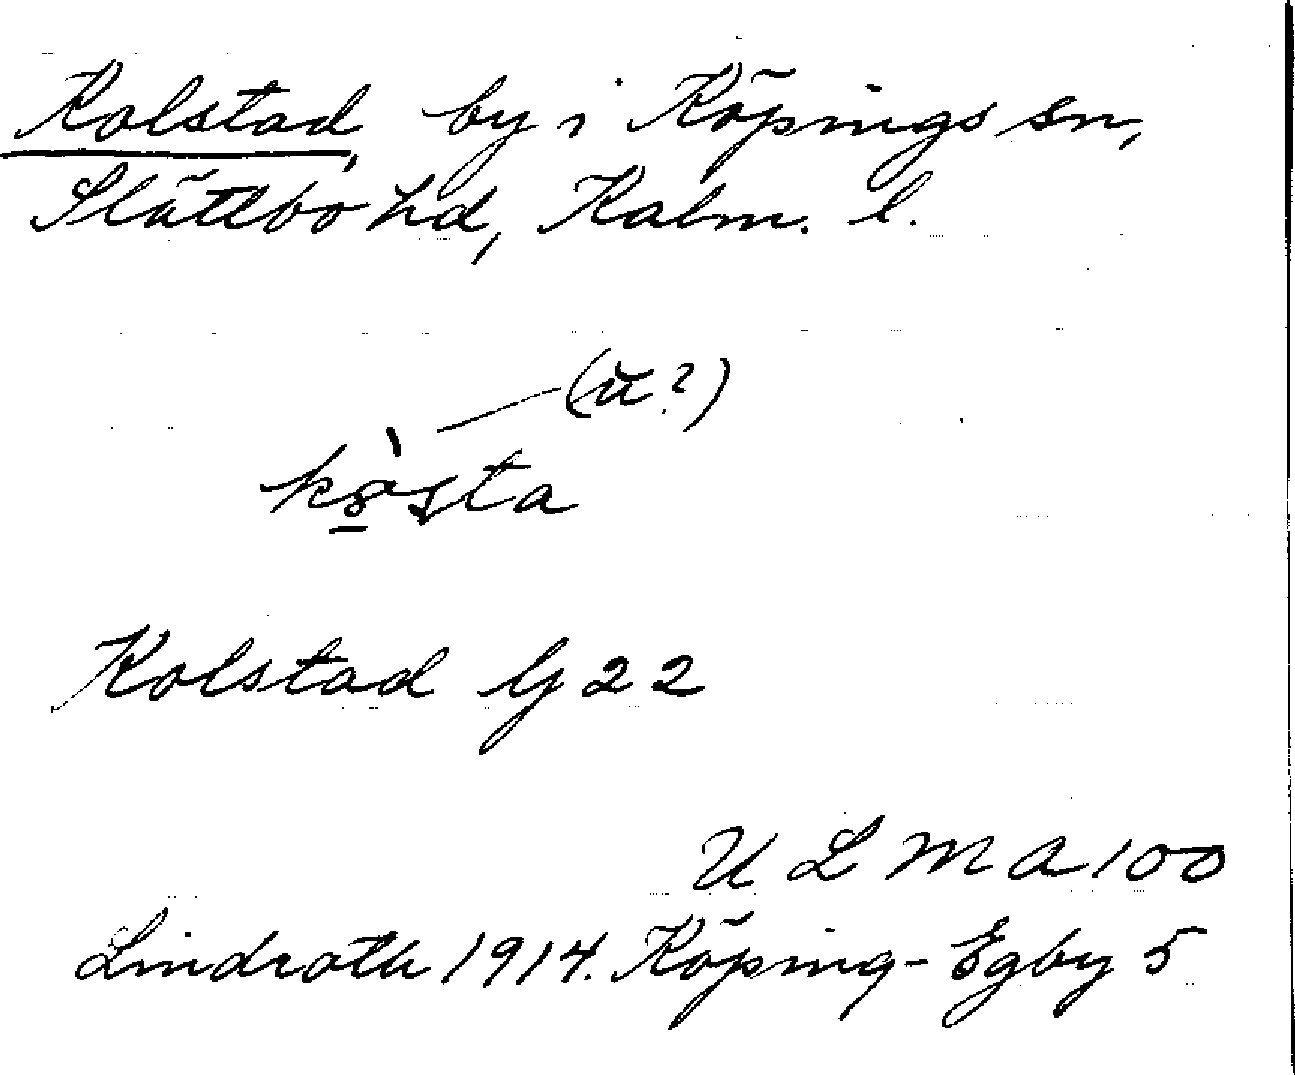 Kolstad, by i Köpings sn,
Slättbo hd, Kalm. l.
(u?)
kò̱sta
Kolstad Gj 22
ULMA 100
Lindroth 1914. Köping-Egby 5